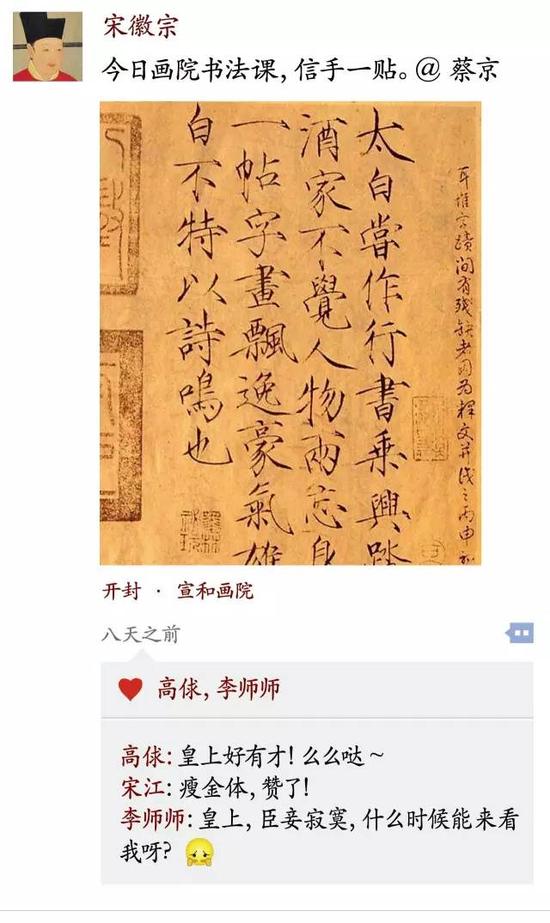 宋徽宗
今日画院书法课,信手一贴。@ 蔡京
字蹟間有殘缺 釋文并識之丙申
太白嘗作行書乘興踏
酒家不覺人物兩忘身
一帖字畫飄逸豪氣雄
白不特以詩鳴也
开封 · 宣和画院
八天之前
高俅, 李师师
高俅: 皇上好有才! 么么哒~
宋江: 瘦金体, 赞了!
李师师: 皇上, 臣妾寂寞, 什么时候能来看
我呀?